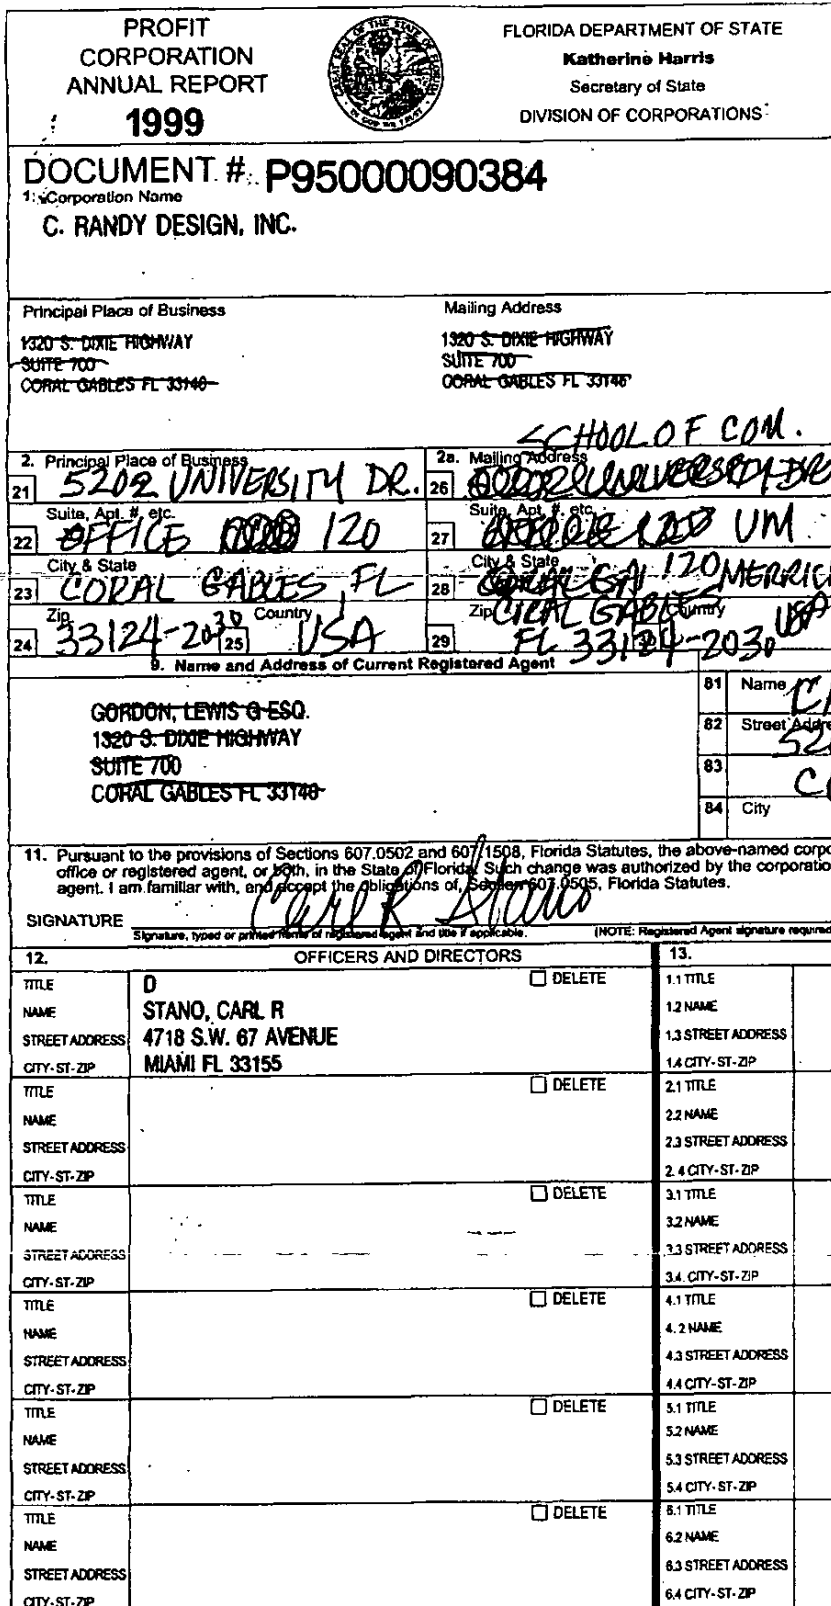 PROFIT
CORPORATION
ANNUAL REPORT
1999
FLORIDA DEPARTMENT OF STATE
Katherine Harris
Secretary of State
DIVISION OF CORPORATIONS
DOCUMENT # P95000090384
1. Corporation Name
C. RANDY DESIGN, INC.
Principal Place of Business
1320 S. DIXIE HIGHWAY
SUITE 700
CORAL GABLES FL 33146
Mailing Address
1320 S. DIXIE HIGHWAY
SUITE 700
CORAL GABLES FL 33146
SCHOOL OF COM.
2. Principal Place of Business
21 5202 UNIVERSITY DR.
2a. Mailing Address
26
Suite, Apt. #, etc.
22 OFFICE 120
Suite, Apt. #, etc.
27 UM
City & State
23 CORAL GABLES, FL
City & State
28 120 MERRIC
Zip
24 33124-2030
Country
25 USA
Zip
CORAL GABLES
Country
USA
29 FL 33124-2030
9. Name and Address of Current Registered Agent
GORDON, LEWIS G ESQ.
1320 S. DIXIE HIGHWAY
SUITE 700
CORAL GABLES FL 33146
81 Name
82 Street Addre
83
84 City
11. Pursuant to the provisions of Sections 607.0502 and 607.1508, Florida Statutes, the above-named corpo
office or registered agent, or both, in the State of Florida. Such change was authorized by the corporatio
agent. I am familiar with, and accept the obligations of, Section 607.0505, Florida Statutes.
SIGNATURE Carl R Stano
Signature, typed or printed name of registered agent and title if applicable. (NOTE: Registered Agent signature required
12. OFFICERS AND DIRECTORS 13.
TITLE D DELETE
NAME STANO, CARL R
STREET ADDRESS 4718 S.W. 67 AVENUE
CITY-ST-ZIP MIAMI FL 33155
1.1 TITLE
1.2 NAME
1.3 STREET ADDRESS
1.4 CITY-ST-ZIP
TITLE DELETE
NAME
STREET ADDRESS
CITY-ST-ZIP
2.1 TITLE
2.2 NAME
2.3 STREET ADDRESS
2.4 CITY-ST-ZIP
TITLE DELETE
NAME
STREET ADDRESS
CITY-ST-ZIP
3.1 TITLE
3.2 NAME
3.3 STREET ADDRESS
3.4. CITY-ST-ZIP
TITLE DELETE
NAME
STREET ADDRESS
CITY-ST-ZIP
4.1 TITLE
4.2 NAME
4.3 STREET ADDRESS
4.4 CITY-ST-ZIP
TITLE DELETE
NAME
STREET ADDRESS
CITY-ST-ZIP
5.1 TITLE
5.2 NAME
5.3 STREET ADDRESS
5.4 CITY-ST-ZIP
TITLE DELETE
NAME
STREET ADDRESS
CITY-ST-ZIP
6.1 TITLE
6.2 NAME
6.3 STREET ADDRESS
6.4 CITY-ST-ZIP